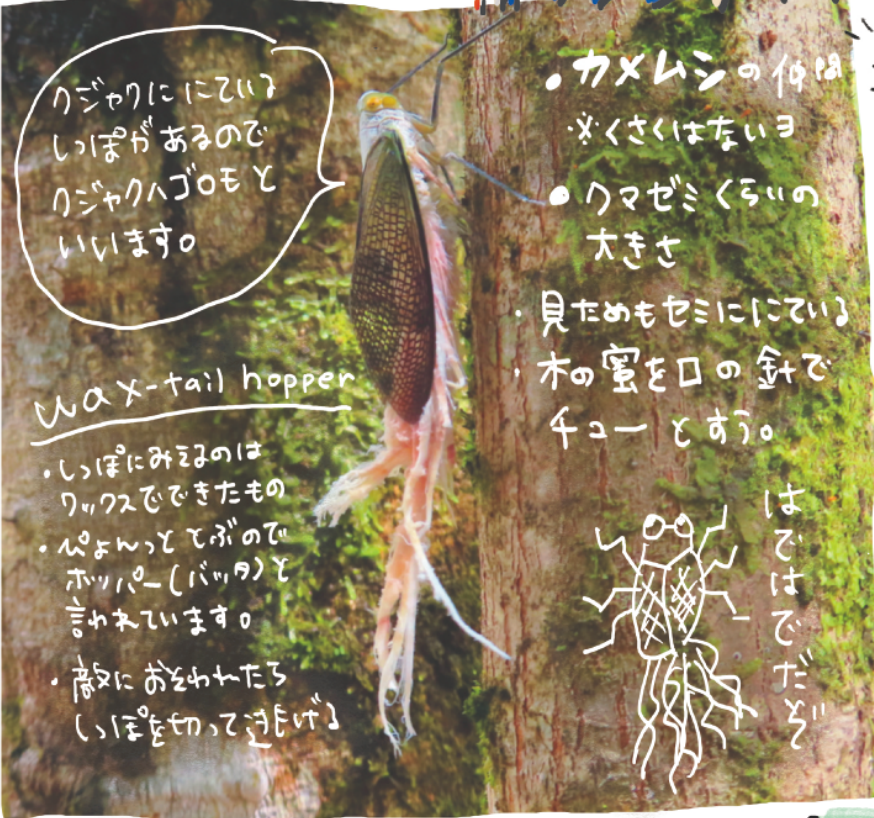 クジャクににている
しっぽがあるので
クジャクハゴロモと
いいます。
wax-tail hopper
・しっぽにみえるのは
ワックスでできたもの
・ぴょんっととぶので
ホッパー(バッタ)と
言われています。
・敵におそわれたら
しっぽを切って逃げる
・カメムシの仲間
※くさくはないヨ
・クマゼミくらいの
大きさ
・見ためもセミににている
・木の蜜を口の針で
チューとすう。
はではでだぞ